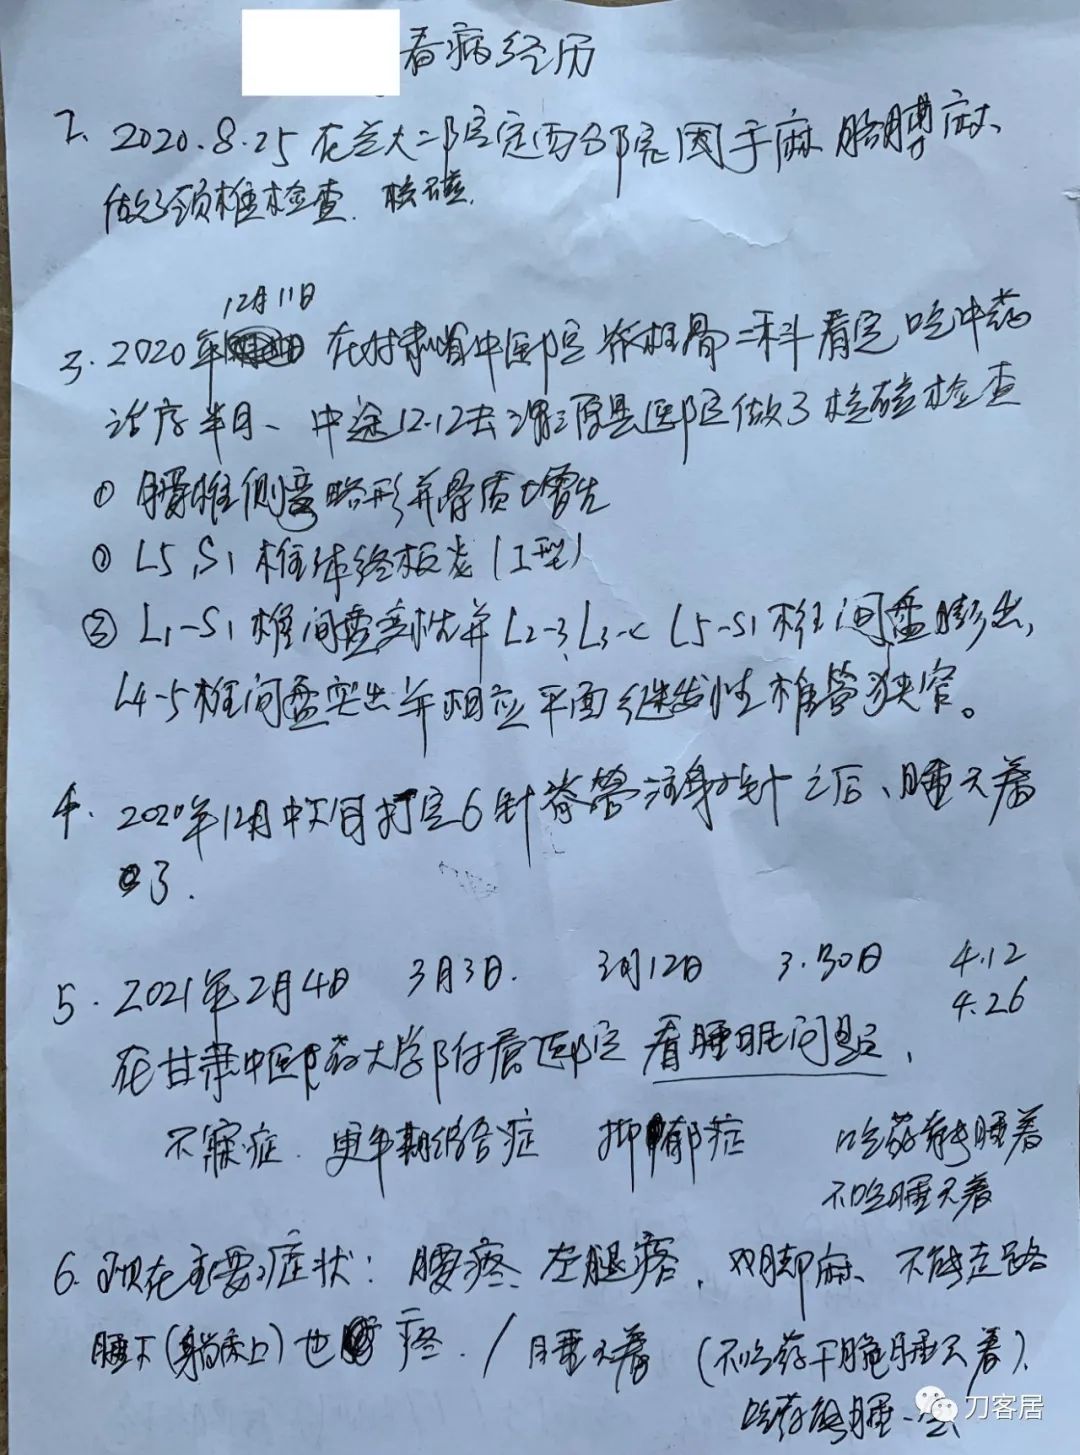 看病经历
2. 2020.8.25 在兰大二院定西分院因手麻 胳膊麻、
做了颈椎检查. 核磁.
12月11日
3. 2020年 在甘肃省中医院脊柱骨二科看完吃冲药
治疗半月、中途12.12去渭源县医院做了核磁检查
① 腰椎侧弯畸形并骨质增生
② L5,S1椎体终板炎(I型)
③ L1-S1椎间盘变性并L2-3、L3-4 L5-S1椎间盘膨出,
L4-5椎间盘突出并相应平面继发性椎管狭窄。
4. 2020年12月中下旬打完6针脊髓注射针之后、睡不着
了.
5. 2021年2月4日 3月3日. 3月12日 3.30日 4.12
4.26
在甘肃中医药大学附属医院看睡眠问题,
不寐症. 更年期综合症 抑郁症 吃药能睡着
不吃睡不着
6. 现在主要症状: 腰疼、左腿疼, 双脚麻、不能走路
睡下(躺床上)也疼. / 睡不着 (不吃药干脆睡不着).
吃药能睡一会
刀客居